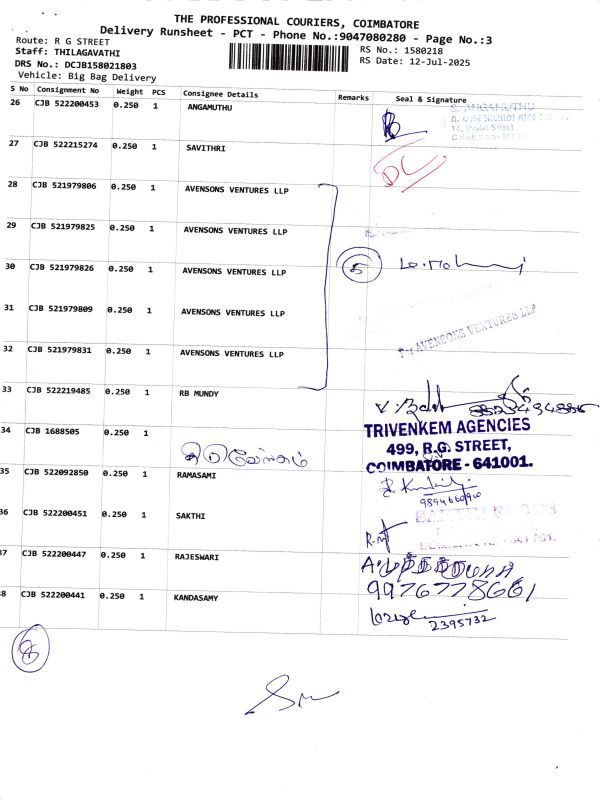 THE PROFESSIONAL COURIERS, COIMBATORE
Delivery Runsheet - PCT - Phone No.:9047080280 - Page No.:3
Route: R G STREET
RS No.: 1580218
Staff: THILAGAVATHI
RS Date: 12-Jul-2025
DRS No.: DCJB158021803
Vehicle: Big Bag Delivery
S No Consignment No Weight PCS Consignee Details Remarks Seal & Signature
26 CJB 522200453 0.250 1 ANGAMUTHU
S. ANGAMUTHU
14, Vysial Street
27 CJB 522215274 0.250 1 SAVITHRI DC
28 CJB 521979806 0.250 1 AVENSONS VENTURES LLP
29 CJB 521979825 0.250 1 AVENSONS VENTURES LLP
30 CJB 521979826 0.250 1 AVENSONS VENTURES LLP 5
31 CJB 521979809 0.250 1 AVENSONS VENTURES LLP
For AVENSONS VENTURES LLP
32 CJB 521979831 0.250 1 AVENSONS VENTURES LLP
33 CJB 522219485 0.250 1 RB MUNDY
34 CJB 1688505 0.250 1
TRIVENKEM AGENCIES
499, R.G. STREET,
COIMBATORE - 641001.
35 CJB 522092850 0.250 1 RAMASAMI
9894660910
36 CJB 522200451 0.250 1 SAKTHI
37 CJB 522200447 0.250 1 RAJESWARI
9976778661
38 CJB 522200441 0.250 1 KANDASAMY
2395732